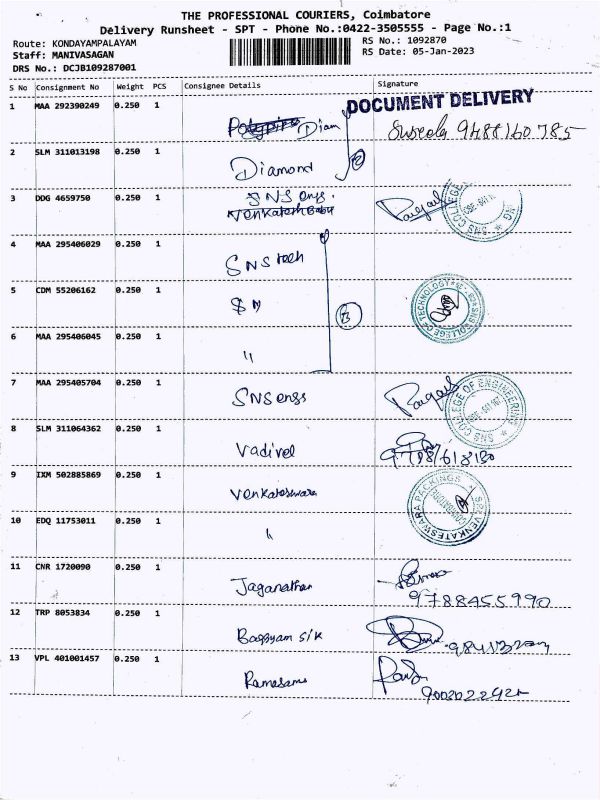 THE PROFESSIONAL COURIERS, Coimbatore
Delivery Runsheet - SPT - Phone No.:0422-3505555 - Page No.:1
Route: KONDAYAMPALAYAM
Staff: MANIVASAGAN
DRS No.: DCJB109287001
RS No.: 1092870
RS Date: 05-Jan-2023
S No Consignment No Weight PCS Consignee Details Signature
DOCUMENT DELIVERY
1 MAA 292390249 0.250 1 Diam 9488160785
2 SLM 311013198 0.250 1 Diamond
3 DDG 4659750 0.250 1 SNS engs.
Venkatesh Babu
4 MAA 295406029 0.250 1 SNS tech
5 CDM 55206162 0.250 1 SN
SNS COLLEGE OF TECHNOLOGY
6 MAA 295406045 0.250 1 "
7 MAA 295405704 0.250 1 SNS engs
SNS COLLEGE OF ENGINEERING
8 SLM 311064362 0.250 1 Vadivel
9 IXM 502885869 0.250 1 Venkateshwara
SRI VENKATESWARA PACKINGS
10 EDQ 11753011 0.250 1 "
11 CNR 1720090 0.250 1 Jaganathan
9788455990
12 TRP 8053834 0.250 1 Bagyam S/K
13 VPL 401001457 0.250 1 Ramasami